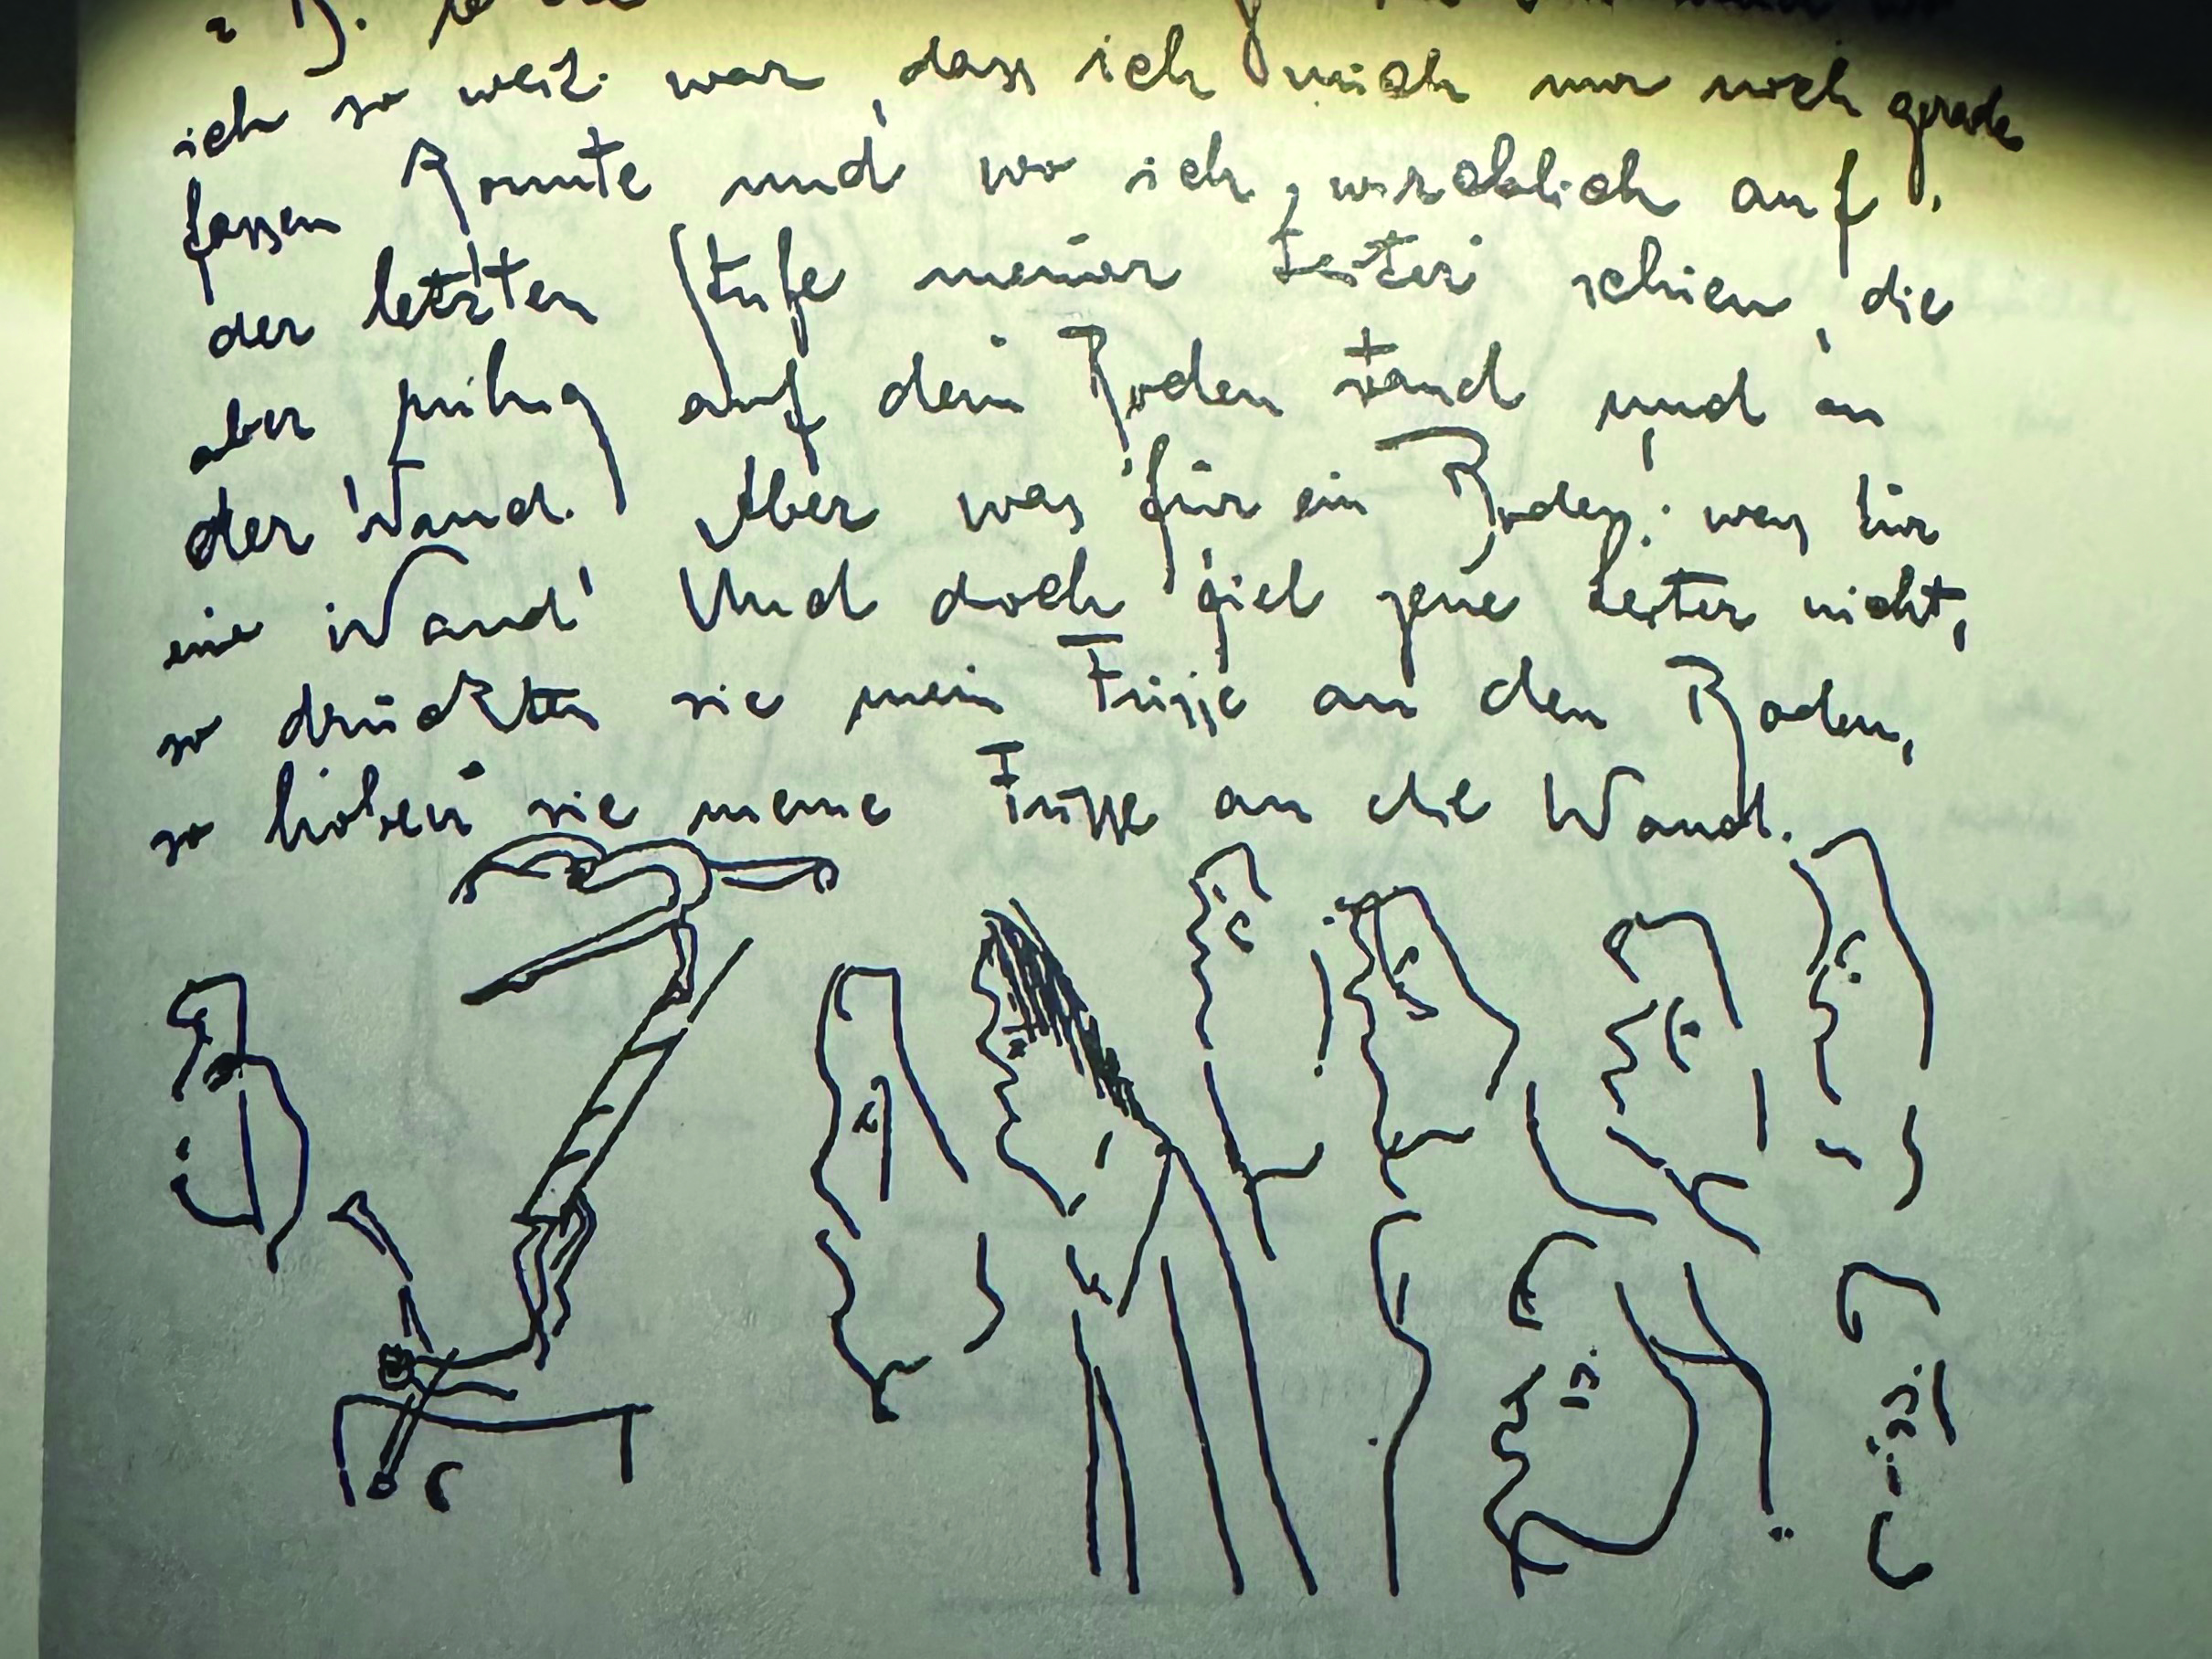 ich so weit war, dass ich mich nur noch gerade
fassen konnte und wo ich, wircklich auf
der letzten Stufe meiner Leiter schien, die
aber ruhig auf dem Boden stand und an
der Wand. Aber was für ein Boden! was für
eine Wand! Und doch fiel jene Leiter nicht,
so drückten sie mein Füsse an den Boden,
so hoben sie meine Füsse an die Wand.